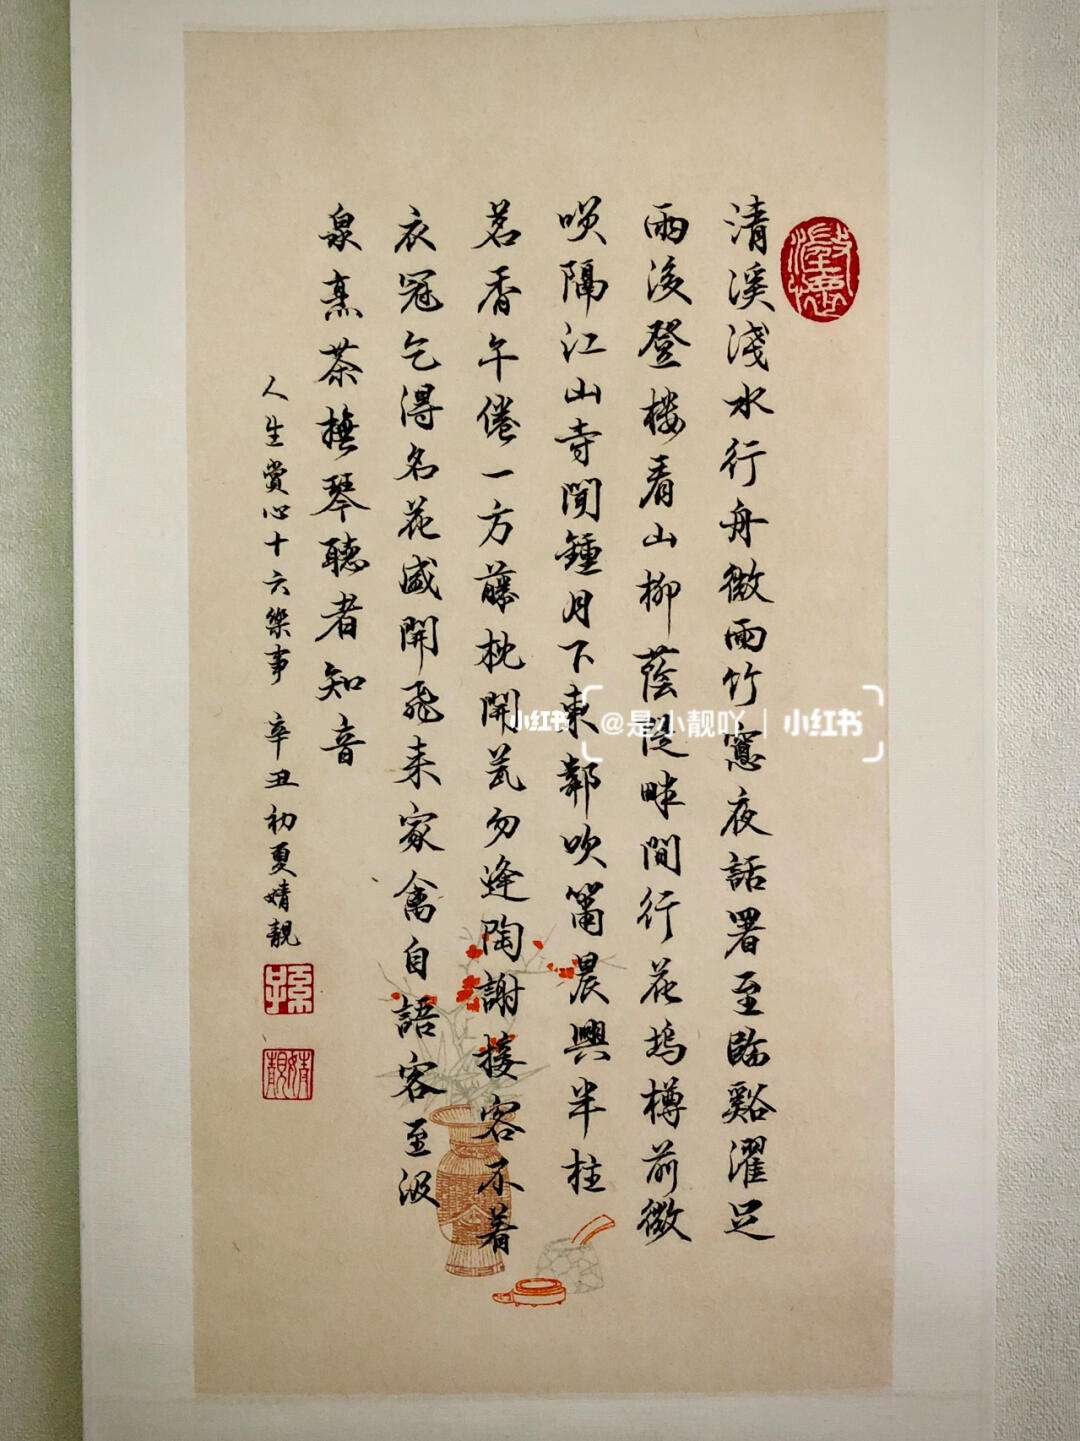 清溪淺水行舟微雨竹窻夜話署至臨谿濯足
雨後登樓看山柳蔭堤畔閒行花塢樽前微
唉隔江山寺聞鍾月下東鄰吹簫晨興半柱
茗香午倦一方藤枕開甕勿逢陶謝接客不着
衣冠乞得名花盛開飛来家禽自語客至汲
泉烹茶撫琴聽者知音
人生賞心十六樂事 辛丑初夏婧靚
孫
婧靚
小红书
@是小靓吖 | 小红书